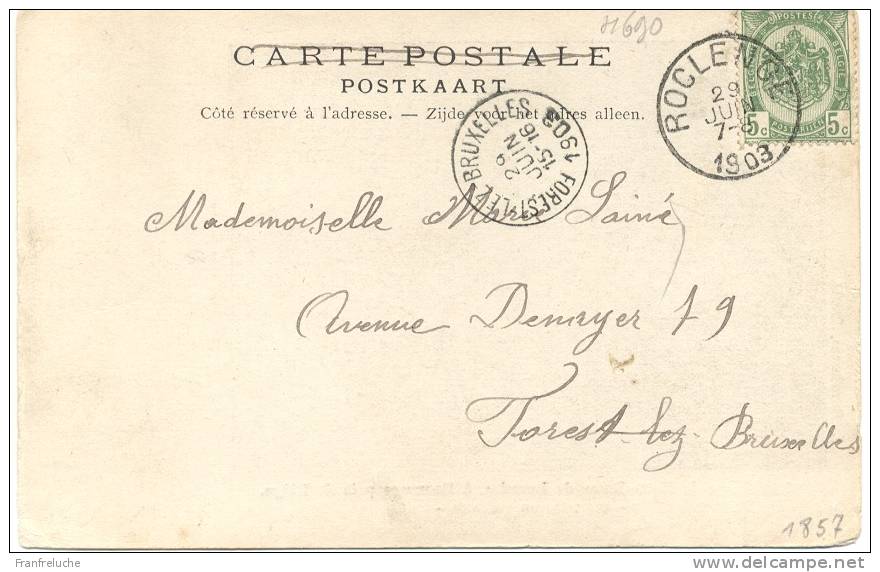 H690
CARTE POSTALE
POSTKAART
Côté réservé à l'adresse. — Zijde voor het adres alleen.
ROCLENGE
29
JUIN
7-8
1903
POSTES
5c 5c
POSTERIJEN
FOREST-LEZ-BRUXELLES
29
JUIN
15-16
1903
Mademoiselle Marie Lainé
Avenue Denayer 79
Forest-lez-Bruxelles
1857
Franfreluche
www.delcampe.net